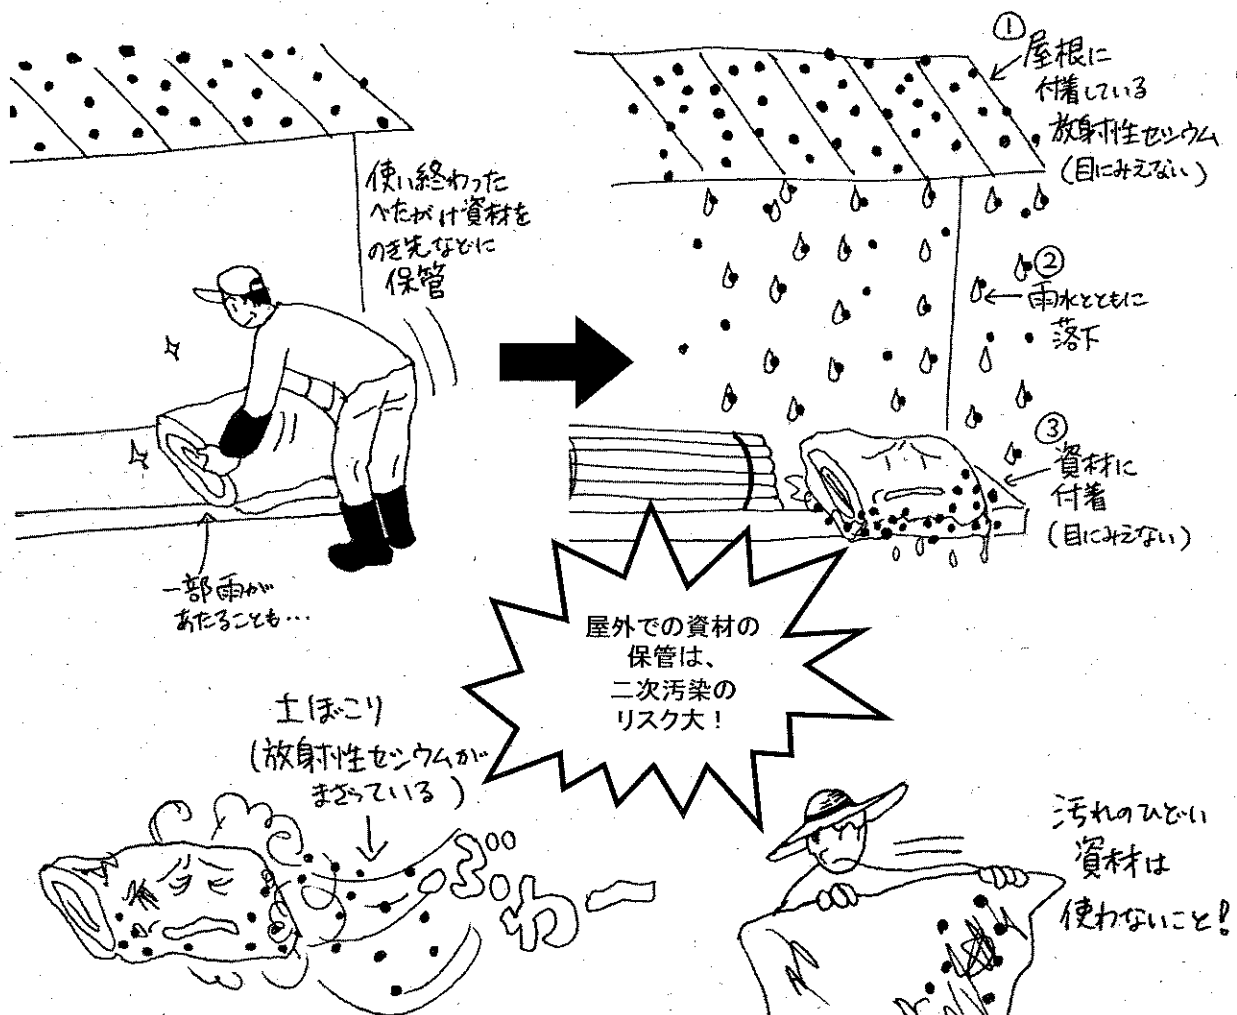 使い終わった
べたがけ資材を
のき先などに
保管
一部雨が
あたることも…
①
屋根に
付着している
放射性セシウム
(目にみえない)
②
雨水とともに
落下
③
資材に
付着
(目にみえない)
屋外での資材の
保管は、
二次汚染の
リスク大！
土ぼこり
(放射性セシウムが
まざっている)
ぶわー
汚れのひどい
資材は
使わないこと！